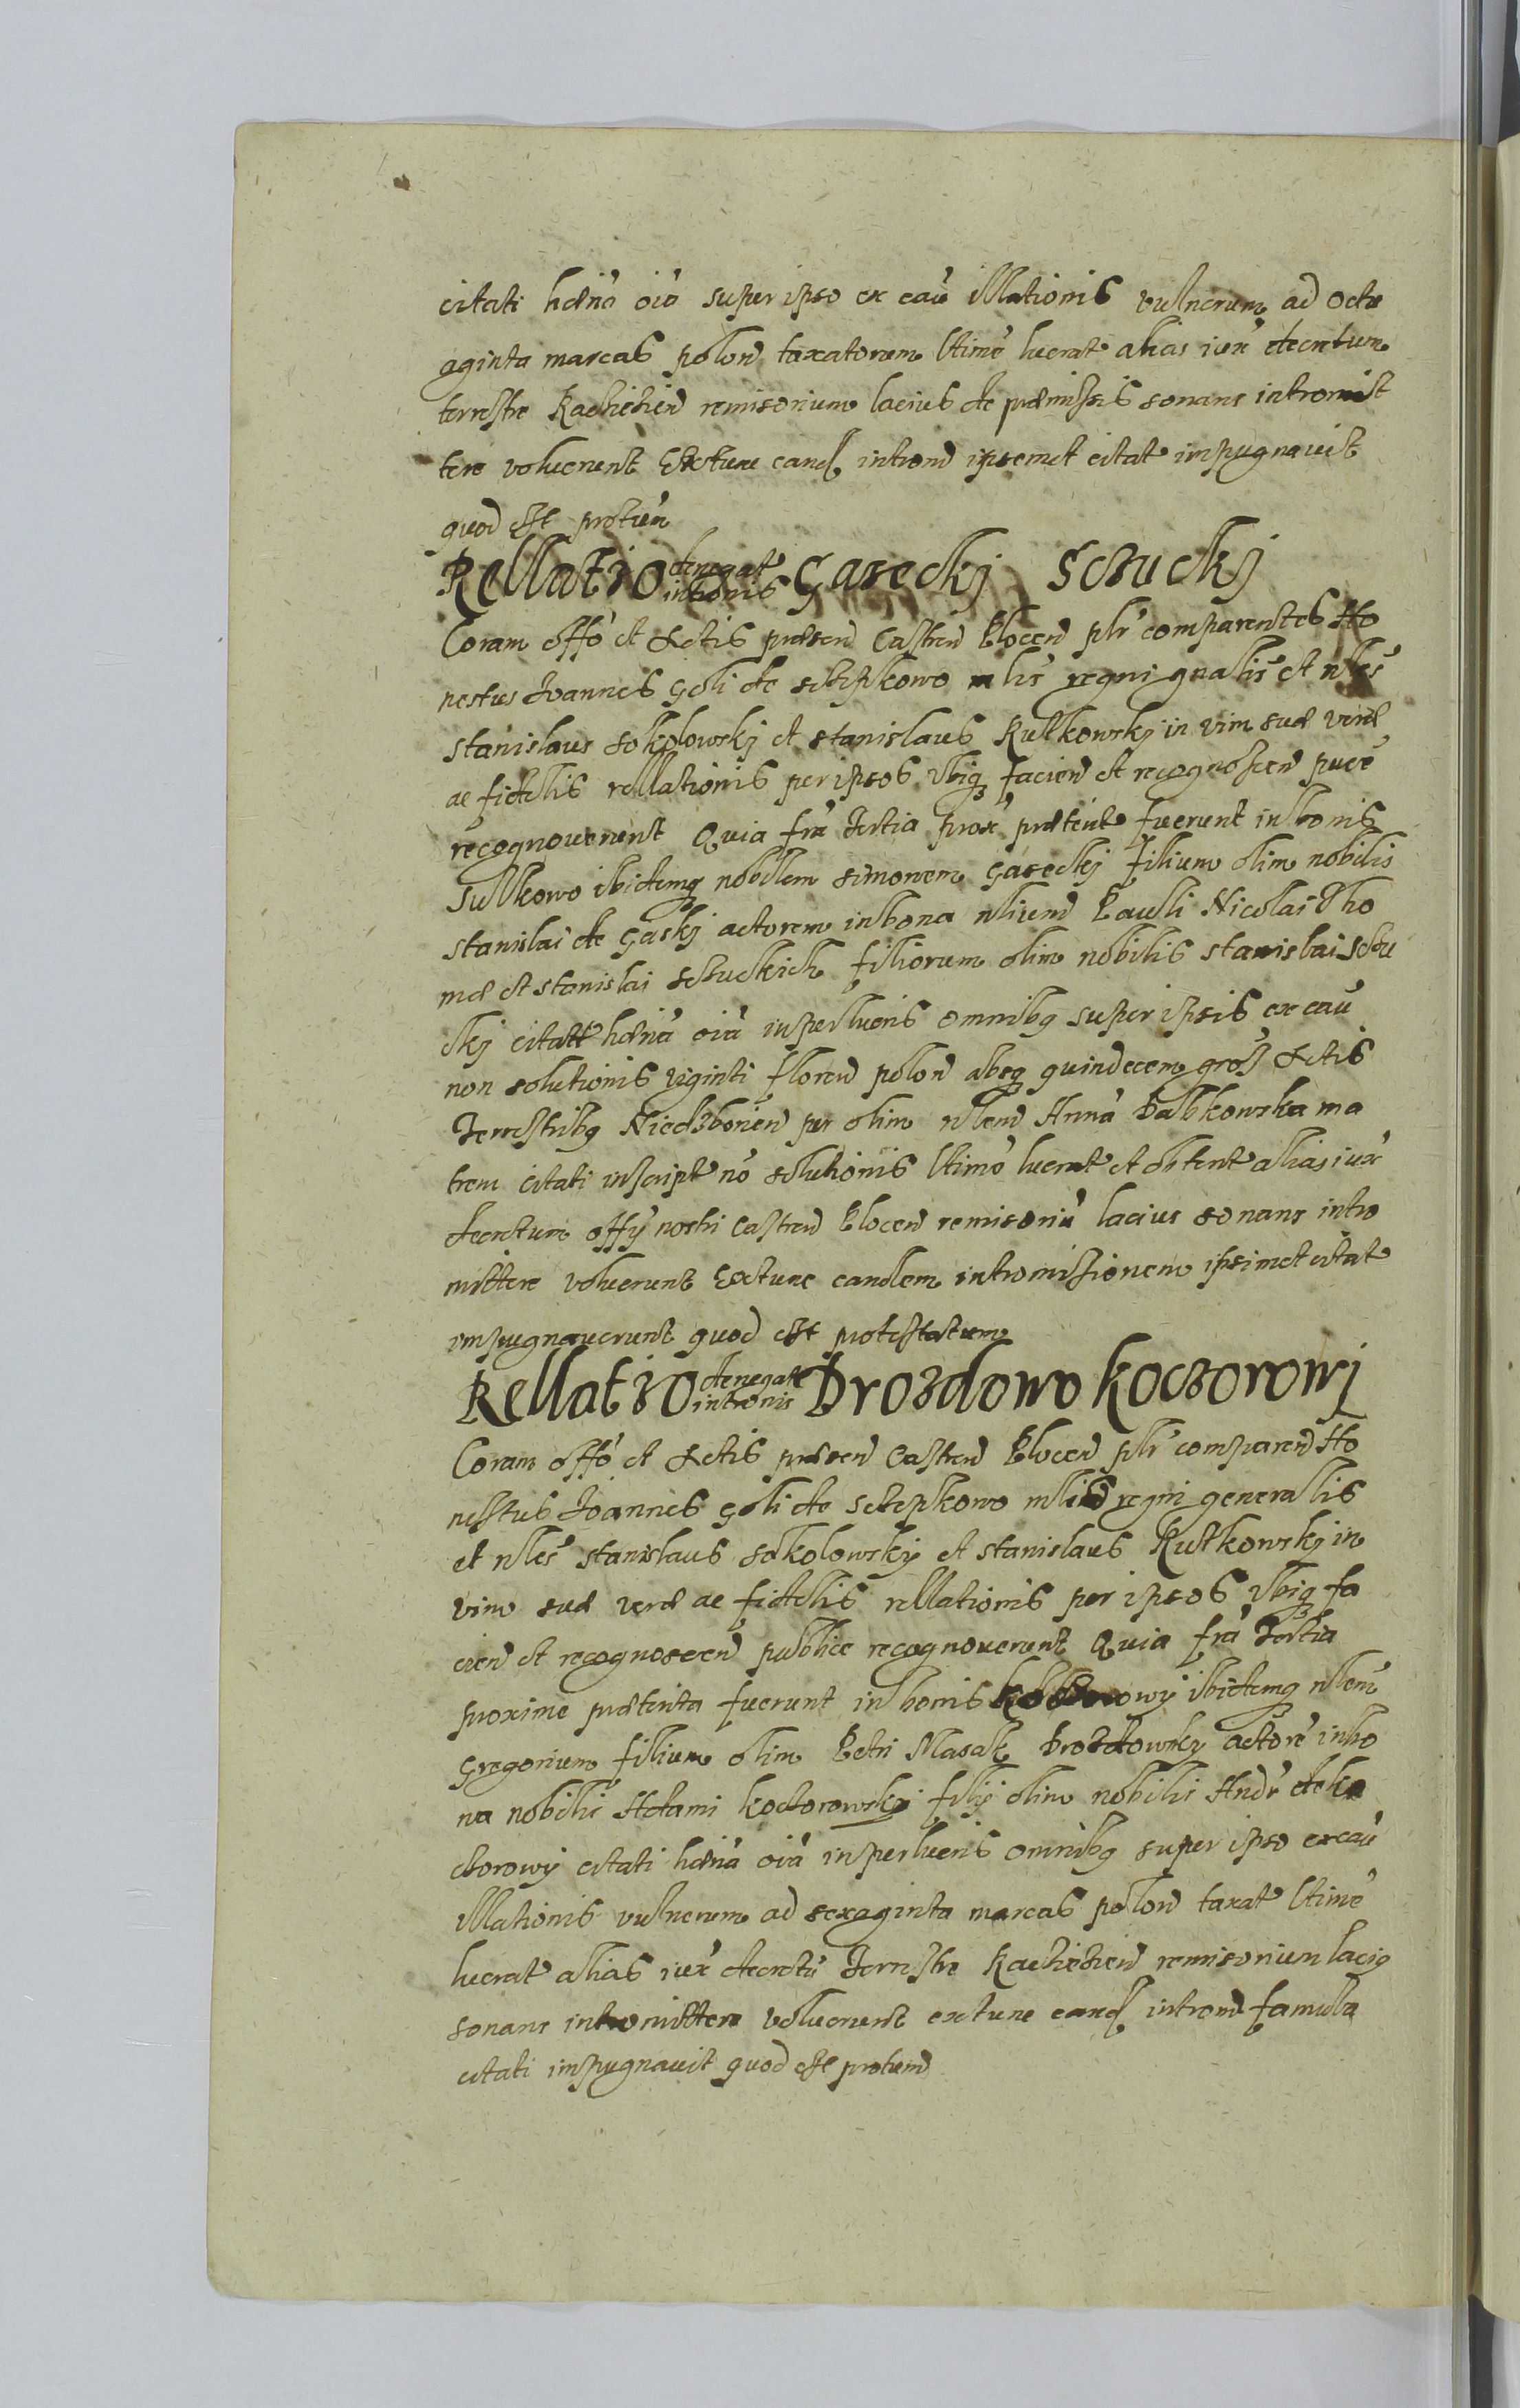 citati hæna oia super ipso ex cau illationis vulnerum ad octu
aginta marcas polon taxatorum ltime lucrat alias iux decretum
terrestre Raczieziен remisorium lacius de præmissis sonans intromit
tere voluerunt Extunc eand introm ipsemet citat impugnavit
quod est protum
Rellatio denegat intronis Gaseckj Sczuckj
Coram offo et Actis præsen Castren Plocen plr comparentes Ho
nestus Joannes Goli de sczepkowo mlis regni gnalis et nles
stanislaus sokolowskj et stanislaus Rutkowskj in vim suæ veræ
ac fidelis rellationis per ipsos vbiq facien et recognoscen puce
recognoverunt Quia fra Tertia prox præterit fuerunt in bonis
Sulkowo ibidemq nobilem simonem Gaseckj filium olim nobilis
stanislai de Gaskj actorem in bona nlium Pauli Nicolai Tho
mæ et stanislai sczuckich filiorum olim nobilis stanislai sczu
ckj citatt hæna oia inperlucris omnibq super ipsis ex cau
non solutionis viginti floren polon absq quindecem gross Actis
Terrestribq Niedzborien per olim nlem Anna Dabkowska ma
trem citati inscript no solutionis ltime lucrat et obtent alias iux
decretum offy nostri Castren Plocen remisoriu lacius sonans intro
mittere voluerunt Extunc eandem intromissionem ipsimet citat
impugnaverunt quod est protestatum
Rellatio denegat intronis Drozdowo Koczorowj
Coram offo et Actis præsen Castren Plocen plr comparen Ho
nestus Joannes Goli de Sczepkowo mlis regni generalis
et nles stanislaus sokolowskj et stanislaus Rutkowskj in
vim suæ veræ ac fidelis rellationis per ipsos vbiq fa
cien et recognoscen publice recognoverunt Quia fra Tertia
proxime præterita fuerunt in bonis ibidemq nlem
Gregorium filium olim Petri Masak Drozdowsky actore in bo
na nobilis Adami koczorowskj filij olim nobilis Andr de ko
czorowy citati hæna oia inperlucris omnibq super ipso ex cau
illationis vulnerum ad sexaginta marcas polon taxat ltime
lucrat alias iux decretu Terrestre Raczieзien remisorium laciq
sonans intromittere voluerunt extunc eand introm famula
citati impugnavit quod est protum